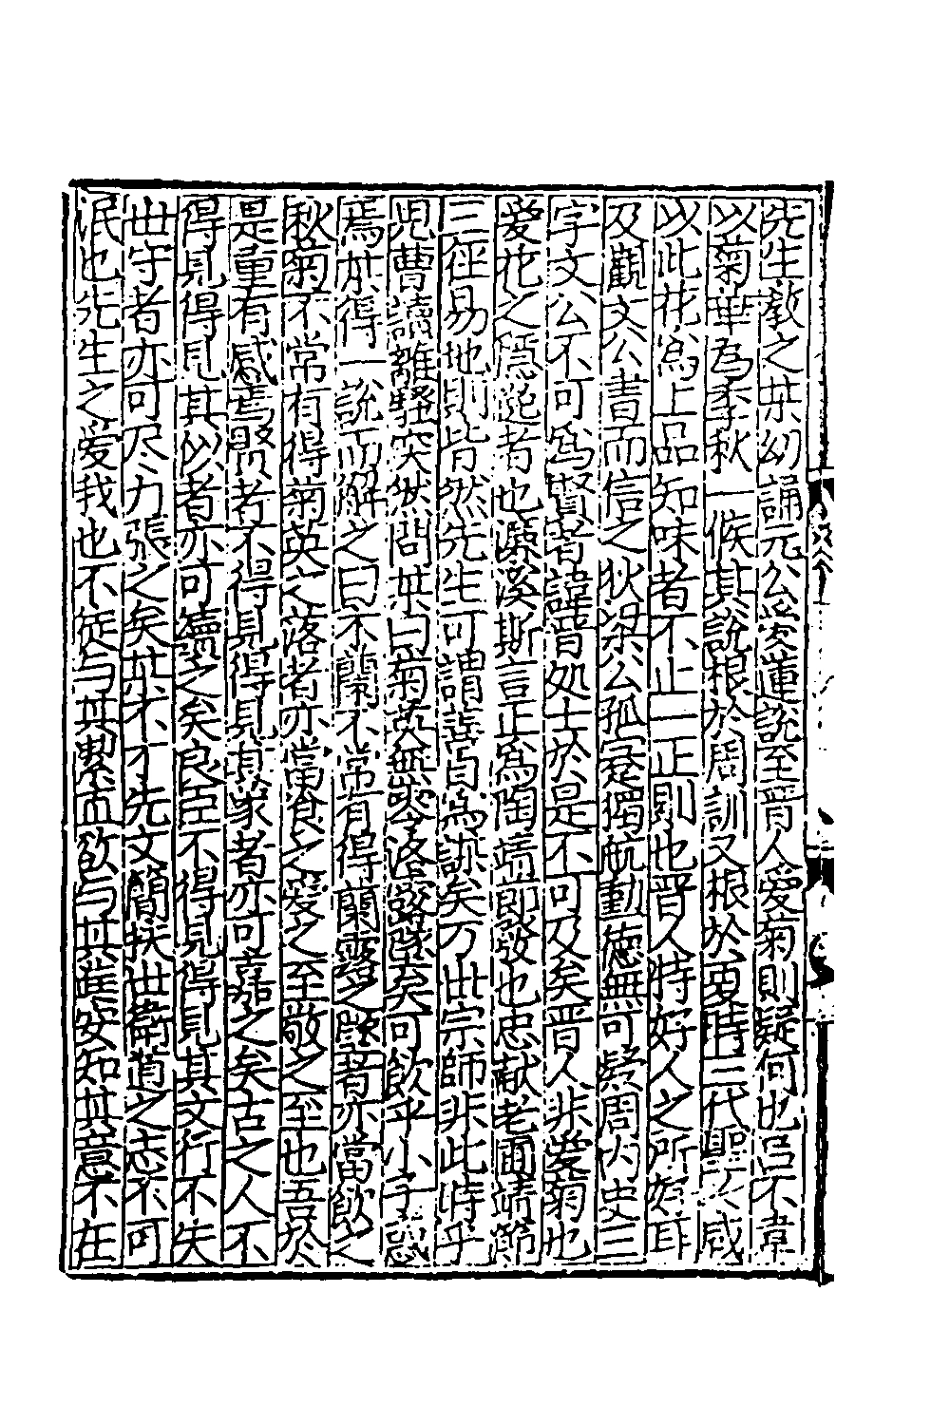 先生教之某幼誦元公愛蓮說至晉人愛菊則疑何也呂不韋
以菊華為季秋一候其說根於周訓又根於夏時三代聖人咸
以此花為上品知味者不止一正則也晉人特好人之所好耳
及觀文公書而信之狄梁公孤忠獨航動德無可疑周內史三
字文公不可為賢者諱晉処士於是不可及矣晉人非愛菊也
愛花之隱逸者也濂溪斯言正為陶靖節發也忠献老圃靖節
三徑易地則皆然先生可謂善自為謀矣万世宗師非此時乎
児曹讀離騷突然問某曰菊英無落墜矣可飲乎小子惑
焉某得一說而解之曰不蘭不常有得蘭露之墜者亦當飲之
秋菊不常有得菊英之落者亦當食之愛之至敬之至也吾於
是重有感焉賢者不得見得見其家者亦可嘉之矣古之人不
得見得見其似者亦可續之矣良臣不得見得見其文行不失
世守者亦可尽力張之矣某不才先文簡扶世衛道之志不可
泯也先生之愛我也不徒与其潔而欲与其進安知其意不在